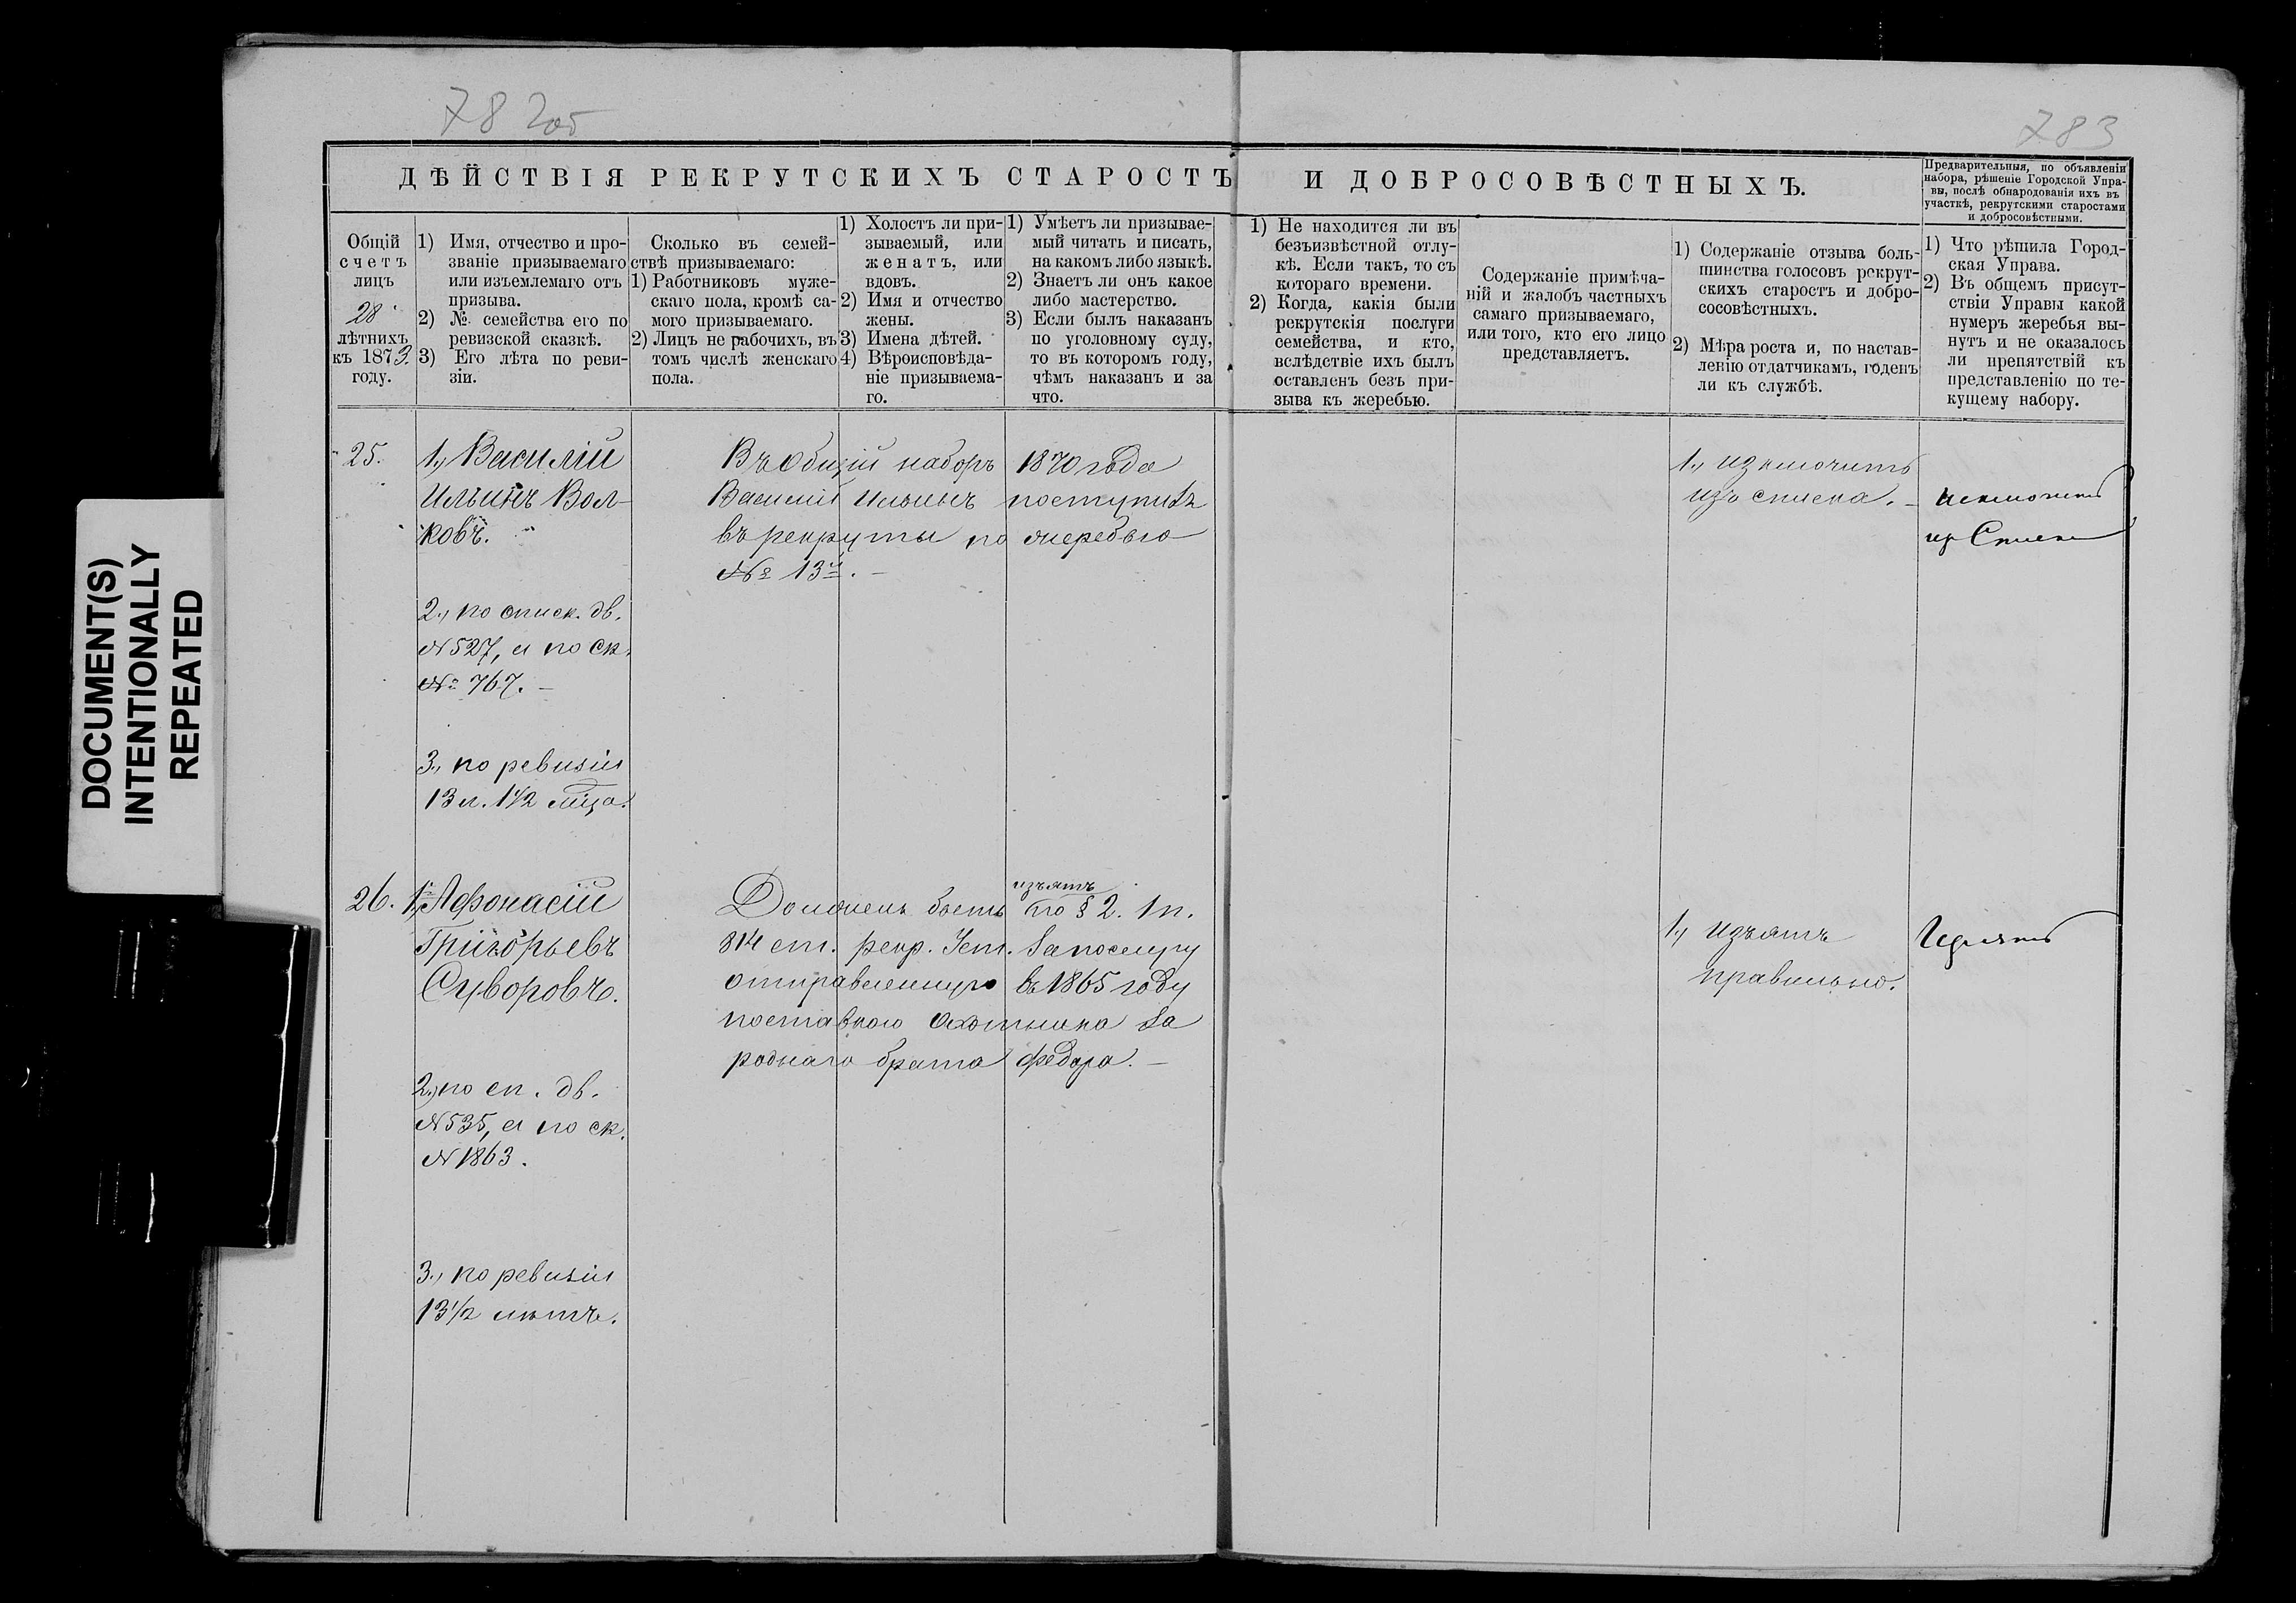 DOCUMENT(S)
INTENTIONALLY
REPEATED
782об
783
ДѢЙСТВІЯ РЕКРУТСКИХЪ СТАРОСТЪ И ДОБРОСОВѢСТНЫХЪ.
Предварительныя, по объявленіи
набора, рѣшеніе Городской Упра-
вы, послѣ обнародованія ихъ въ
участкѣ, рекрутскими старостами
и добросовѣстными.
Общій
счетъ
лицъ
28
лѣтнихъ
къ 1873
году.
1) Имя, отчество и про-
званіе призываемаго
или изъемлемаго отъ
призыва.
2) №. семейства его по
ревизской сказкѣ.
3) Его лѣта по реви-
зіи.
Сколько въ семей-
ствѣ призываемаго:
1) Работниковъ муже-
скаго пола, кромѣ са-
мого призываемаго.
2) Лицъ не рабочихъ, въ
томъ числѣ женскаго
пола.
1) Холостъ ли при-
зываемый, или
женатъ, или
вдовъ.
2) Имя и отчество
жены.
3) Имена дѣтей.
4) Вѣроисповѣда-
ніе призываема-
го.
1) Умѣетъ ли призывае-
мый читать и писать,
на какомъ либо языкѣ.
2) Знаетъ ли онъ какое
либо мастерство.
3) Если былъ наказанъ
по уголовному суду,
то въ которомъ году,
чѣмъ наказанъ и за
что.
1) Не находится ли въ
безъизвѣстной отлу-
кѣ. Если такъ, то съ
котораго времени.
2) Когда, какія были
рекрутскія послуги
семейства, и кто,
вслѣдствіе ихъ былъ
оставленъ безъ при-
зыва къ жеребью.
Содержаніе примѣча-
ній и жалобъ частныхъ
самаго призываемаго,
или того, кто его лицо
представляетъ.
1) Содержаніе отзыва боль-
шинства голосовъ рекрут-
скихъ старостъ и добро-
сосовѣстныхъ.
2) Мѣра роста и, по настав-
ленію отдатчикамъ, годенъ
ли къ службѣ.
1) Что рѣшила Город-
ская Управа.
2) Въ общемъ присут-
ствіи Управы какой
нумеръ жеребья вы-
нутъ и не оказалось
ли препятствій къ
представленію по те-
кущему набору.
25.
1., Василій
Ильинъ Вол-
ковъ.
2., по списк. дв.
№ 527, а по ск.
№ 767. –
3., по ревизіи
13 л. 1 1/2 мѣца.
Въ Общій наборъ 1870 года
Василій Ильинъ поступилъ
въ рекруты по жеребью
№ 13й. –
1., исключить
изъ списка. –
исключить
из Списка
26.
1., Афонасій
Григорьевъ
Суворовъ.
2., по сп. дв.
№ 535, а по ск.
№ 1863.
3., по ревизіи
13 1/2 лѣтъ.
изъятъ
Долженъ быть по § 2. 1 п.
814 ст. рекр. Уст. за послугу
отправленную въ 1865 году
поставкою охотника за
роднаго брата Федора. –
1., изъятъ
правильно.
Изъять